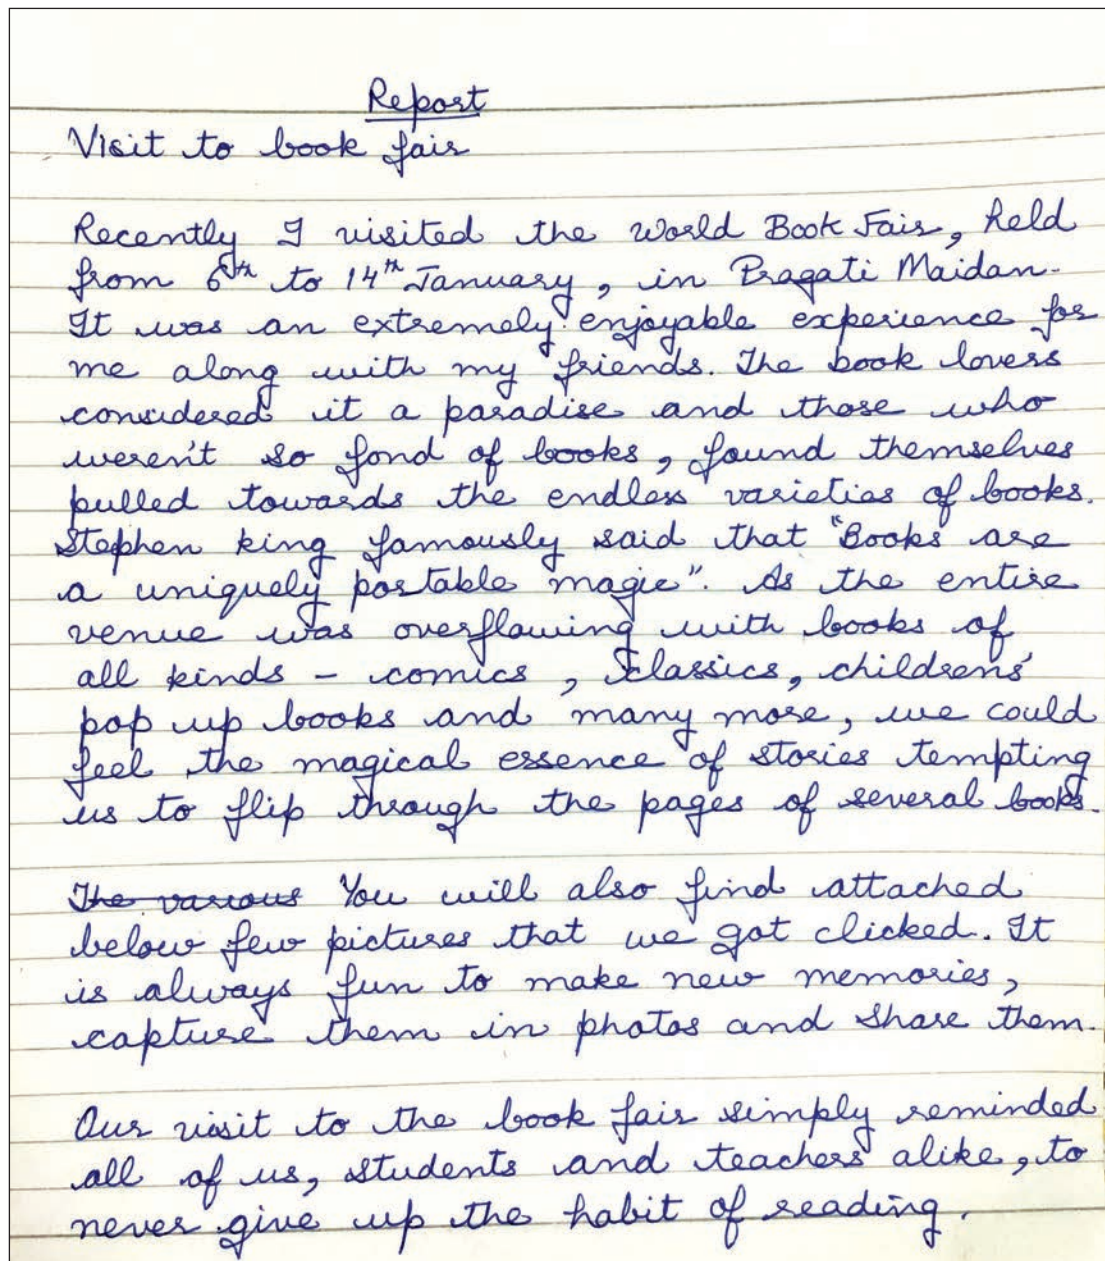 Report
Visit to book fair
Recently I visited the World Book Fair, held
from 6th to 14th January, in Pragati Maidan.
It was an extremely enjoyable experience for
me along with my friends. The book lovers
considered it a paradise and those who
weren't so fond of books, found themselves
pulled towards the endless varieties of books.
Stephen king famously said that "Books are
a uniquely portable magic". As the entire
venue was overflowing with books of
all kinds - comics, classics, childrens'
pop up books and many more, we could
feel the magical essence of stories tempting
us to flip through the pages of several books.
The various You will also find attached
below few pictures that we got clicked. It
is always fun to make new memories,
capture them in photos and share them.
Our visit to the book fair simply reminded
all of us, students and teachers alike, to
never give up the habit of reading.